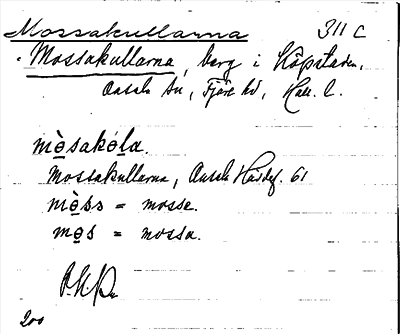 Mossakullarna 311 C
Mossakullarna, berg i Köpstaden,
Onsala sn, Fjäre hd, Hall. l.
mòsakóla.
Mossakullarna, Onsala Häidef. 61
mòss = mosse.
mos = mossa.
200